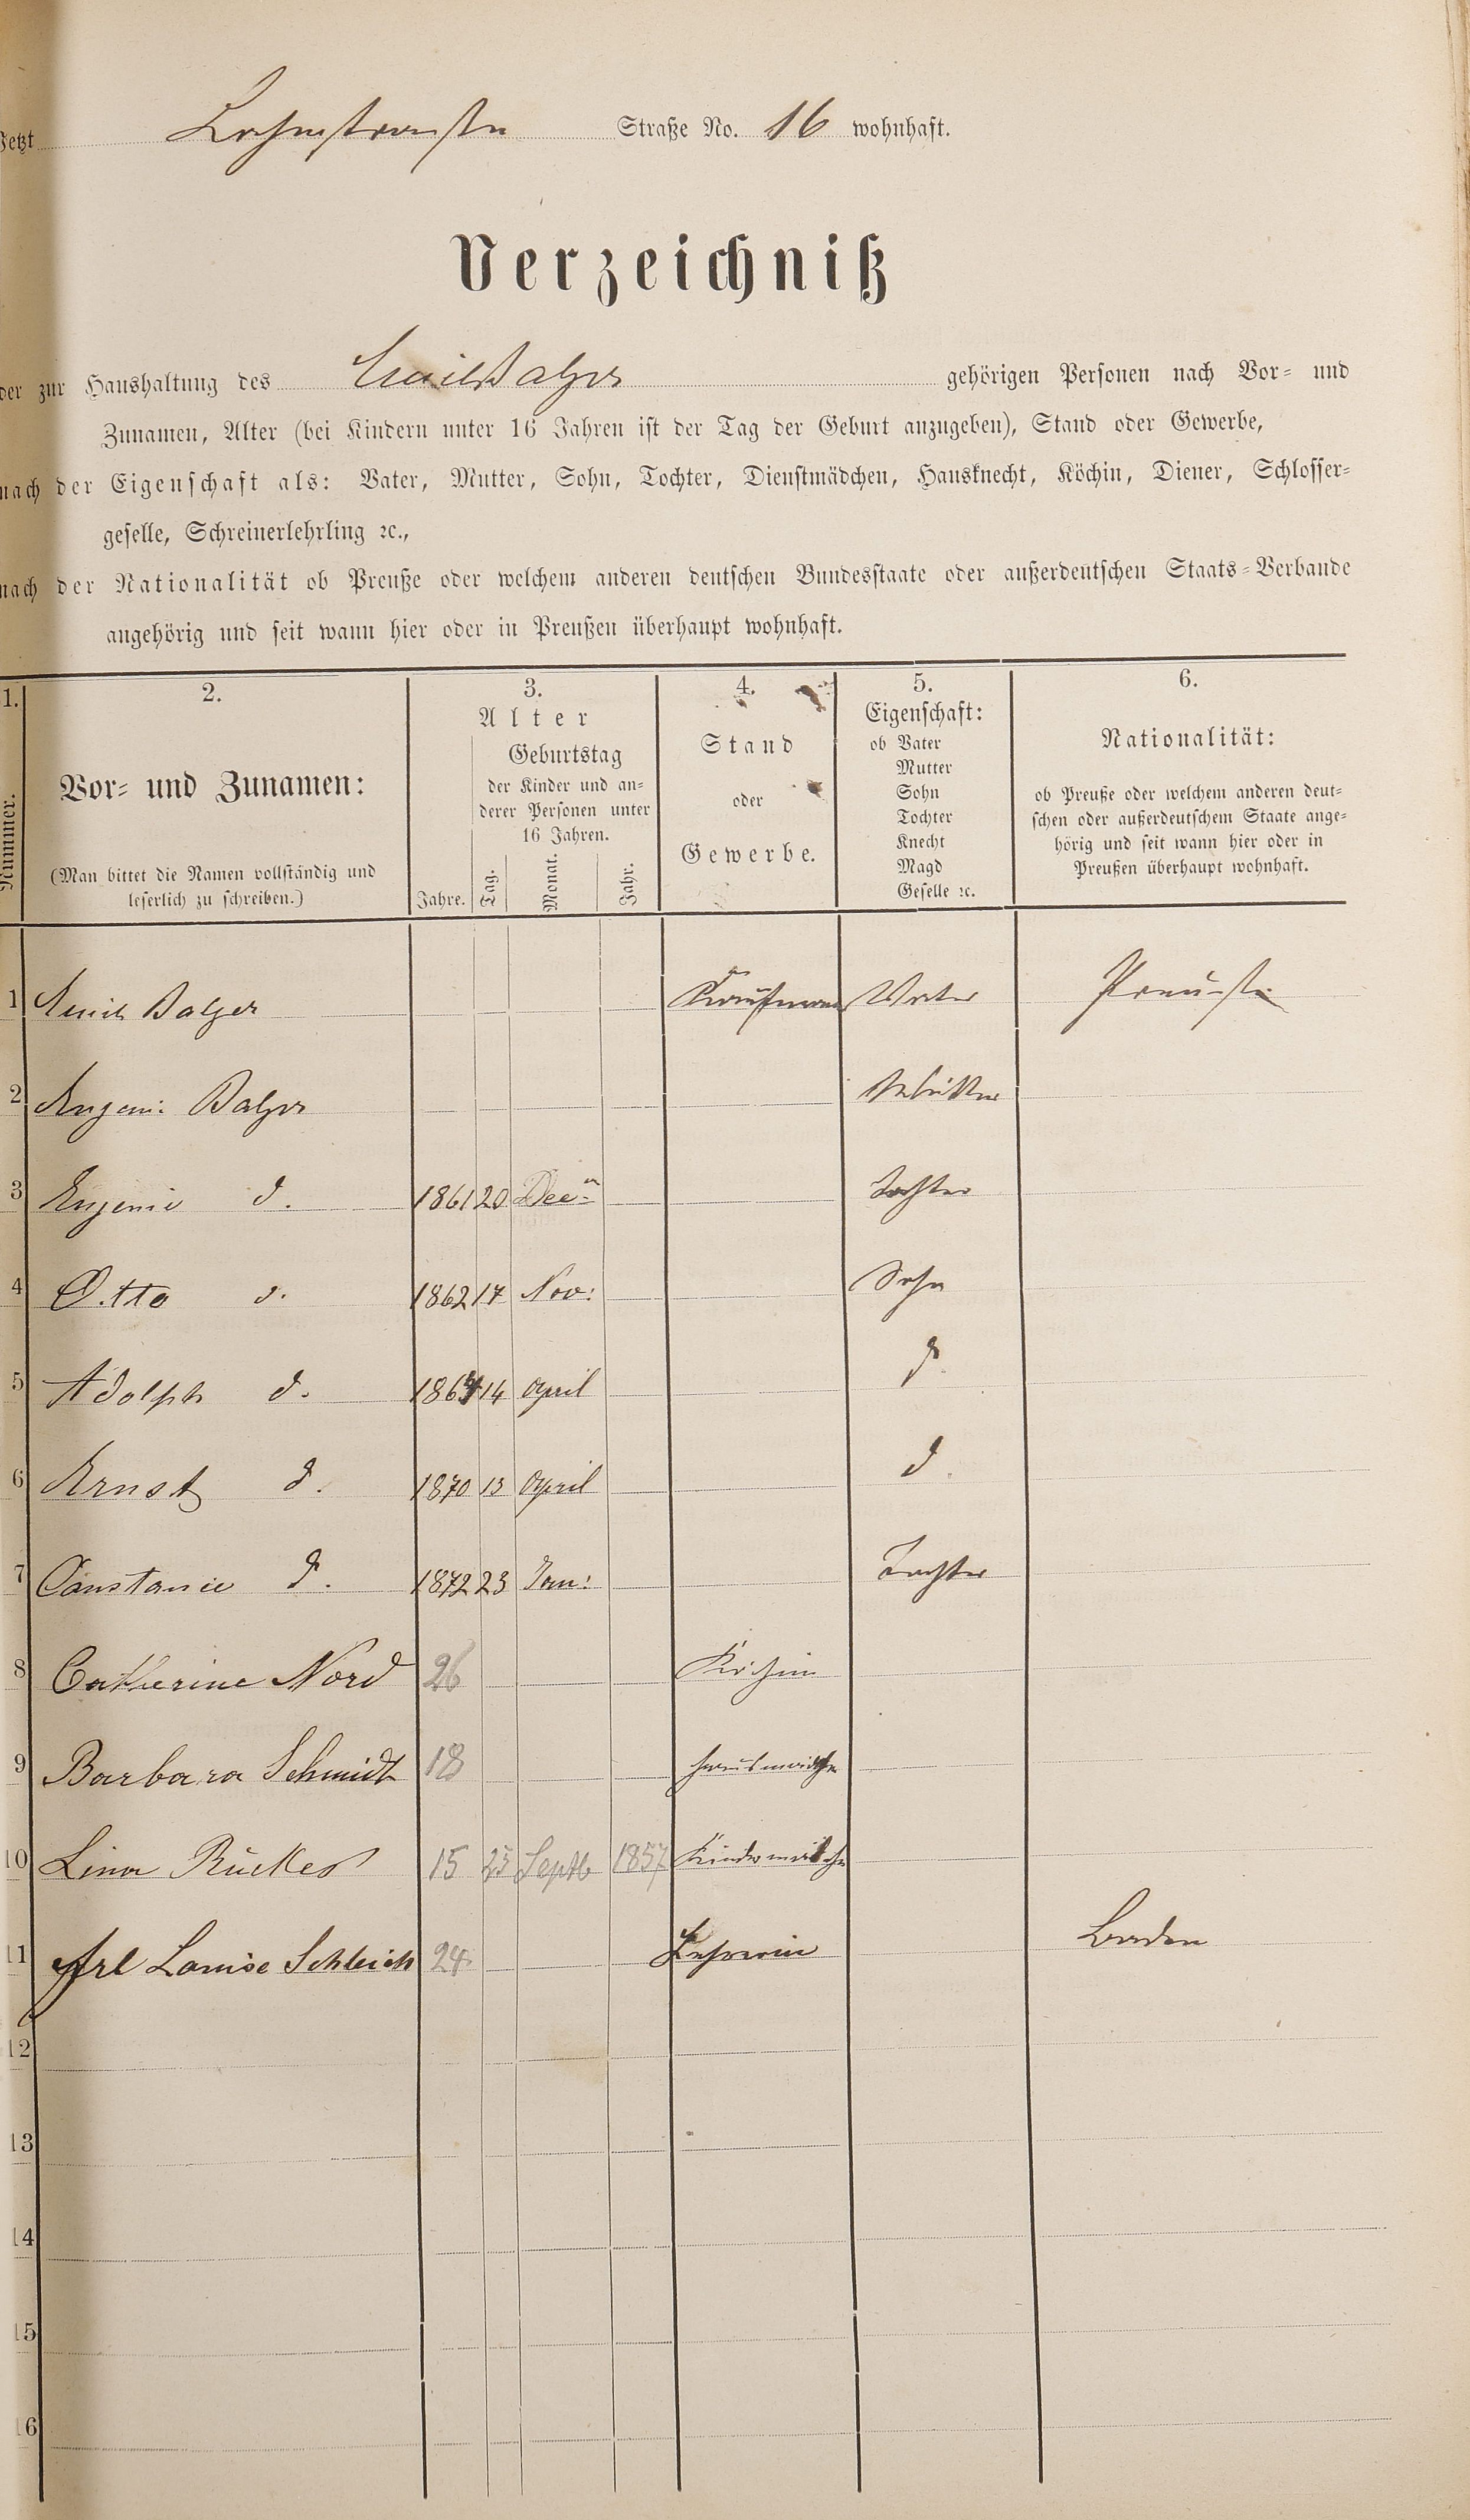 Jetzt Lahnstraße Straße No. 16 wohnhaft.
Verzeichniß
der zur Haushaltung des Emil Balzer gehörigen Personen nach Vor- und
Zunamen, Alter (bei Kindern unter 16 Jahren ist der Tag der Geburt anzugeben), Stand oder Gewerbe,
nach der Eigenschaft als: Vater, Mutter, Sohn, Tochter, Dienstmädchen, Hausknecht, Köchin, Diener, Schlosser-
geselle, Schreinerlehrling ꝛc.,
nach der Nationalität ob Preuße oder welchem anderen deutschen Bundesstaate oder außerdeutschen Staats-Verbande
angehörig und seit wann hier oder in Preußen überhaupt wohnhaft.
1. Nummer.
2.
Vor- und Zunamen:
(Man bittet die Namen vollständig und
leserlich zu schreiben.)
3.
Alter
Geburtstag
der Kinder und an-
derer Personen unter
16 Jahren.
Jahre. Tag. Monat. Jahr.
4.
Stand
oder
Gewerbe.
5.
Eigenschaft:
ob Vater
Mutter
Sohn
Tochter
Knecht
Magd
Geselle ꝛc.
6.
Nationalität:
ob Preuße oder welchem anderen deut-
schen oder außerdeutschem Staate ange-
hörig und seit wann hier oder in
Preußen überhaupt wohnhaft.
1 Emil Balzer Kaufmann Vater Preuße
2 Eugenie Balzer Mutter
3 Eugenie d. 1861 20 Decr. Tochter
4 Otto d. 1862 17 Nov: Sohn
5 Adolph d. 1864 14 April d.
6 Ernst d. 1870 13 April d.
7 Constance d. 1872 23 Jan: Tochter
8 Catherine Nord 26 Köchin
9 Barbara Schmidt 18 Hausmädchen
10 Lina Rückes 15 25 Septb 1857 Kindermädchen
11 Frl Louise Schleich 24 Lehrerin Baden
12
13
14
15
16